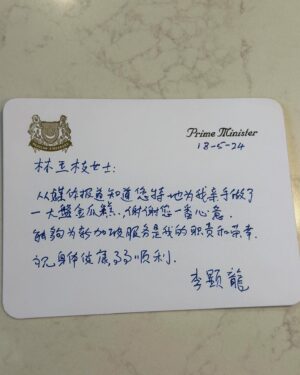 Prime Minister
18-5-24
林玉枝女士:
从媒体报道知道您特地为我亲手做了
一大盘金瓜糕,谢谢您一番心意。
能够为新加坡服务是我的职责和荣幸.
祝身体健康,顺利.
李顯龍